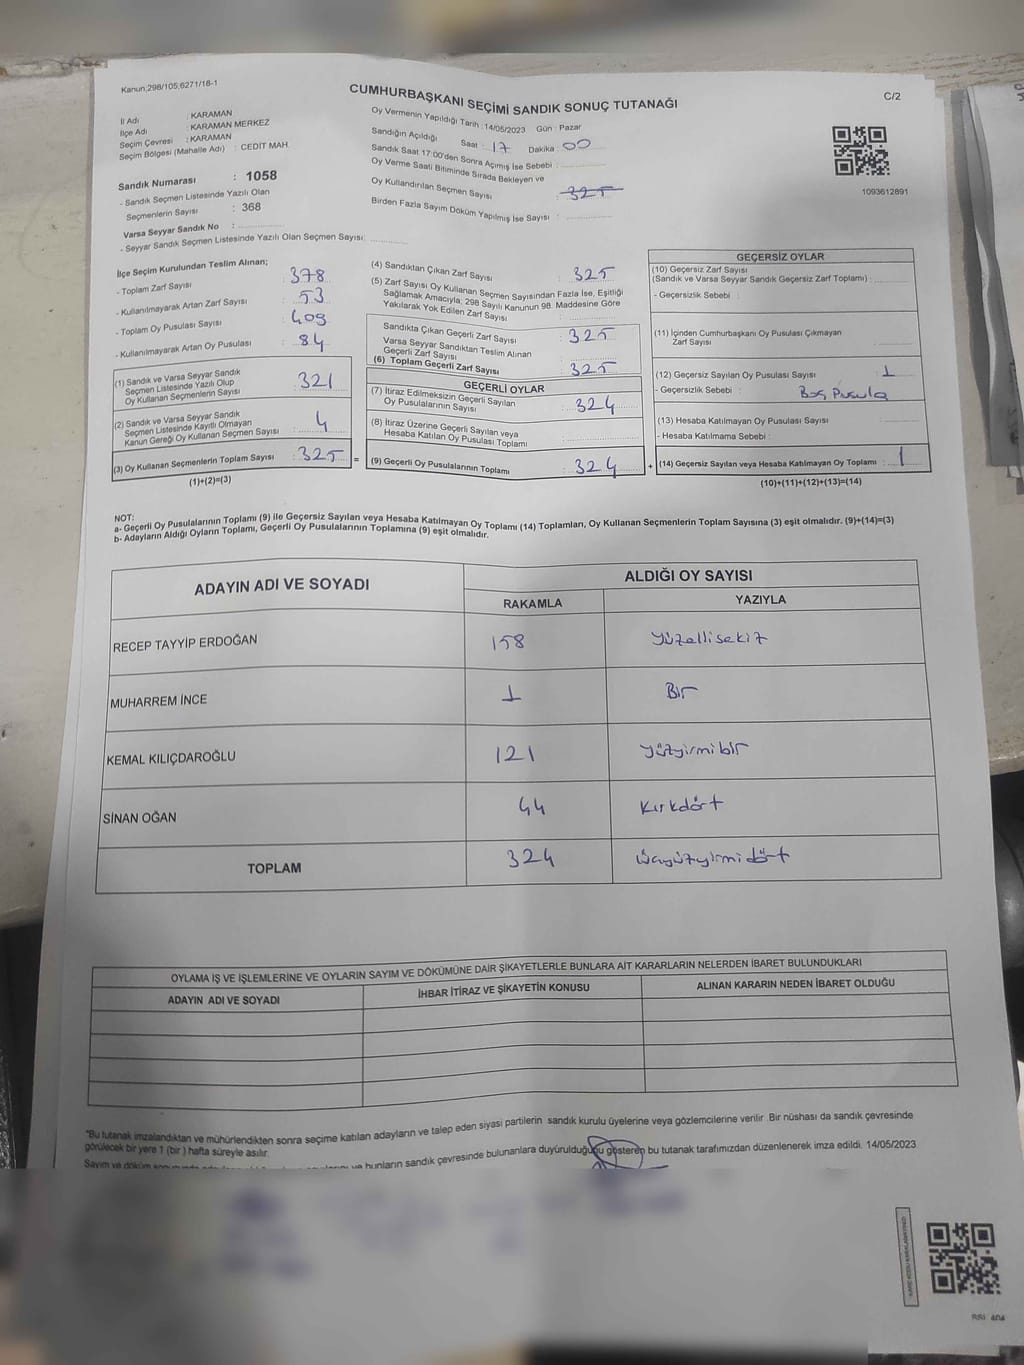 Kanun,298/105,6271/18-1
CUMHURBAŞKANI SEÇİMİ SANDIK SONUÇ TUTANAĞI
C/2
İl Adı : KARAMAN
İlçe Adı : KARAMAN MERKEZ
Seçim Çevresi : KARAMAN
Seçim Bölgesi (Mahalle Adı) : CEDİT MAH.
Sandık Numarası : 1058
- Sandık Seçmen Listesinde Yazılı Olan
Seçmenlerin Sayısı : 368
Varsa Seyyar Sandık No :
- Seyyar Sandık Seçmen Listesinde Yazılı Olan Seçmen Sayısı:
Oy Vermenin Yapıldığı Tarih : 14/05/2023 Gün : Pazar
Sandığın Açıldığı Saat : 17 Dakika : 00
Sandık Saat 17:00'den Sonra Açımış İse Sebebi :
Oy Verme Saati Bitiminde Sırada Bekleyen ve
Oy Kullandırılan Seçmen Sayısı : 325
Birden Fazla Sayım Döküm Yapılmış İse Sayısı :
1093612891
İlçe Seçim Kurulundan Teslim Alınan;
- Toplam Zarf Sayısı : 378
- Kullanılmayarak Artan Zarf Sayısı : 53
- Toplam Oy Pusulası Sayısı : 409
- Kullanılmayarak Artan Oy Pusulası : 84
(1) Sandık ve Varsa Seyyar Sandık
Seçmen Listesinde Yazılı Olup
Oy Kullanan Seçmenlerin Sayısı : 321
(2) Sandık ve Varsa Seyyar Sandık
Seçmen Listesinde Kayıtlı Olmayan
Kanun Gereği Oy Kullanan Seçmen Sayısı : 4
(3) Oy Kullanan Seçmenlerin Toplam Sayısı : 325 =
(1)+(2)=(3)
(4) Sandıktan Çıkan Zarf Sayısı : 325
(5) Zarf Sayısı Oy Kullanan Seçmen Sayısından Fazla İse, Eşitliği
Sağlamak Amacıyla; 298 Sayılı Kanunun 98. Maddesine Göre
Yakılarak Yok Edilen Zarf Sayısı :
Sandıkta Çıkan Geçerli Zarf Sayısı : 325
Varsa Seyyar Sandıktan Teslim Alınan
Geçerli Zarf Sayısı :
(6) Toplam Geçerli Zarf Sayısı : 325
GEÇERLİ OYLAR
(7) İtiraz Edilmeksizin Geçerli Sayılan
Oy Pusulalarının Sayısı : 324
(8) İtiraz Üzerine Geçerli Sayılan veya
Hesaba Katılan Oy Pusulası Toplamı :
(9) Geçerli Oy Pusulalarının Toplamı : 324 +
GEÇERSİZ OYLAR
(10) Geçersiz Zarf Sayısı
(Sandık ve Varsa Seyyar Sandık Geçersiz Zarf Toplamı) :
- Geçersizlik Sebebi :
(11) İçinden Cumhurbaşkanı Oy Pusulası Çıkmayan
Zarf Sayısı :
(12) Geçersiz Sayılan Oy Pusulası Sayısı : 1
- Geçersizlik Sebebi : Boş Pusula
(13) Hesaba Katılmayan Oy Pusulası Sayısı :
- Hesaba Katılmama Sebebi :
(14) Geçersiz Sayılan veya Hesaba Katılmayan Oy Toplamı : 1
(10)+(11)+(12)+(13)=(14)
NOT:
a- Geçerli Oy Pusulalarının Toplamı (9) ile Geçersiz Sayılan veya Hesaba Katılmayan Oy Toplamı (14) Toplamları, Oy Kullanan Seçmenlerin Toplam Sayısına (3) eşit olmalıdır. (9)+(14)=(3)
b- Adayların Aldığı Oyların Toplamı, Geçerli Oy Pusulalarının Toplamına (9) eşit olmalıdır.
ADAYIN ADI VE SOYADI
ALDIĞI OY SAYISI
RAKAMLA YAZIYLA
RECEP TAYYİP ERDOĞAN 158 Yüzellisekiz
MUHARREM İNCE 1 Bir
KEMAL KILIÇDAROĞLU 121 Yüzyirmibir
SİNAN OĞAN 44 Kırkdört
TOPLAM 324 üçyüzyirmidört
OYLAMA İŞ VE İŞLEMLERİNE VE OYLARIN SAYIM VE DÖKÜMÜNE DAİR ŞİKAYETLERLE BUNLARA AİT KARARLARIN NELERDEN İBARET BULUNDUKLARI
ADAYIN ADI VE SOYADI İHBAR İTİRAZ VE ŞİKAYETİN KONUSU ALINAN KARARIN NEDEN İBARET OLDUĞU
*Bu tutanak imzalandıktan ve mühürlendikten sonra seçime katılan adayların ve talep eden siyasi partilerin sandık kurulu üyelerine veya gözlemcilerine verilir. Bir nüshası da sandık çevresinde
görülecek bir yere 1 (bir ) hafta süreyle asılır.
Sayım ve döküm bunların sandık çevresinde bulunanlara duyurulduğunu gösteren bu tutanak tarafımızdan düzenlenerek imza edildi. 14/05/2023